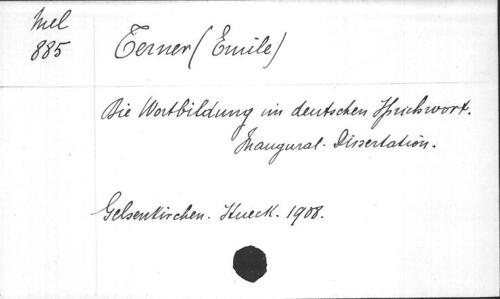 Mel
885
Terner (Emile)
Die Wortbildung im deutschen Sprichwort.
Inaugural-Dissertation.
Gelsenkirchen. Hueck. 1908.